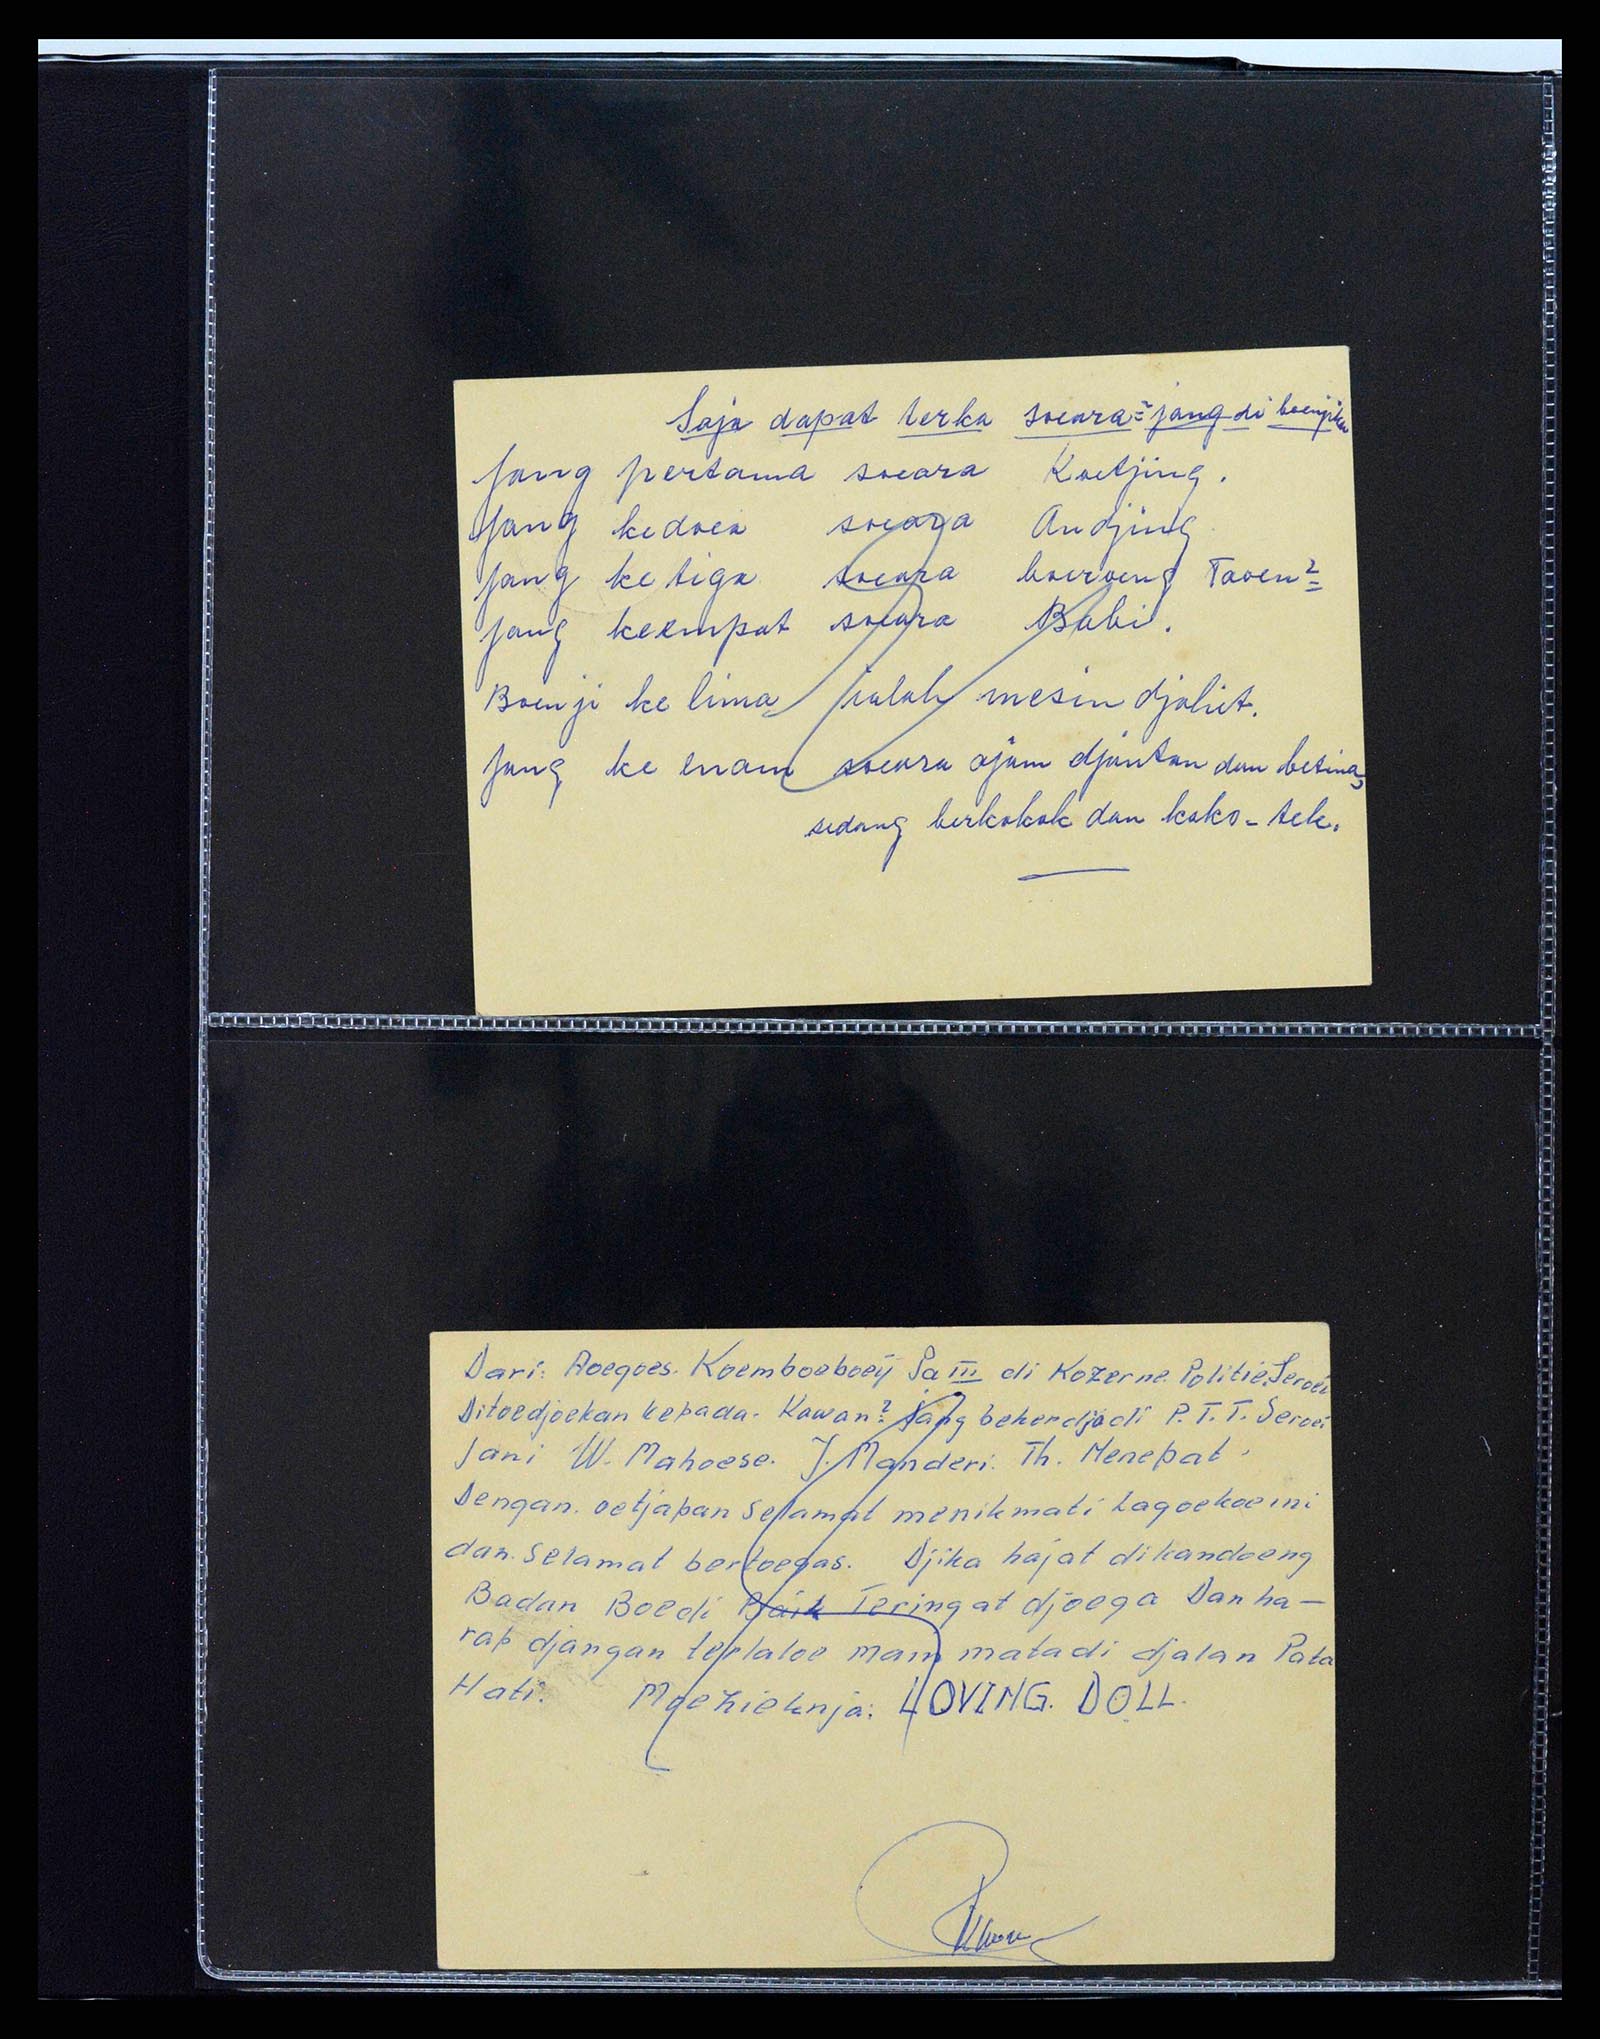 Saja dapat terka soeara² jang di boenjikan
Jang pertama soeara Koetjing.
Jang kedoea soeara Andjing
Jang ketiga soeara boeroeng Taoen²
Jang keempat soeara Babi.
Boenji ke lima ialah mesin djahit.
Jang ke enam soeara ajam djantan dan betina,
sedang berkokok dan koko-tek.
Dari: Aoegoes. Koemboeboeij Pa III di Kozerne Politie. Seroei
Ditoedjoekan kepada. Kawan² jang bekerdja di P.T.T. Seroei
Jani W. Mahoese. J. Manderi. Th. Menepat.
Dengan. oetjapan Selamat menikmati Lagoekoe ini
dan. Selamat bertoegas. Djika hajat dikandoeng
Badan Boedi Baik Teringat djoega Dan ha-
rap djangan terlaloe main mata di djalan Pata
Hati. Moezieknja: LOVING. DOLL.